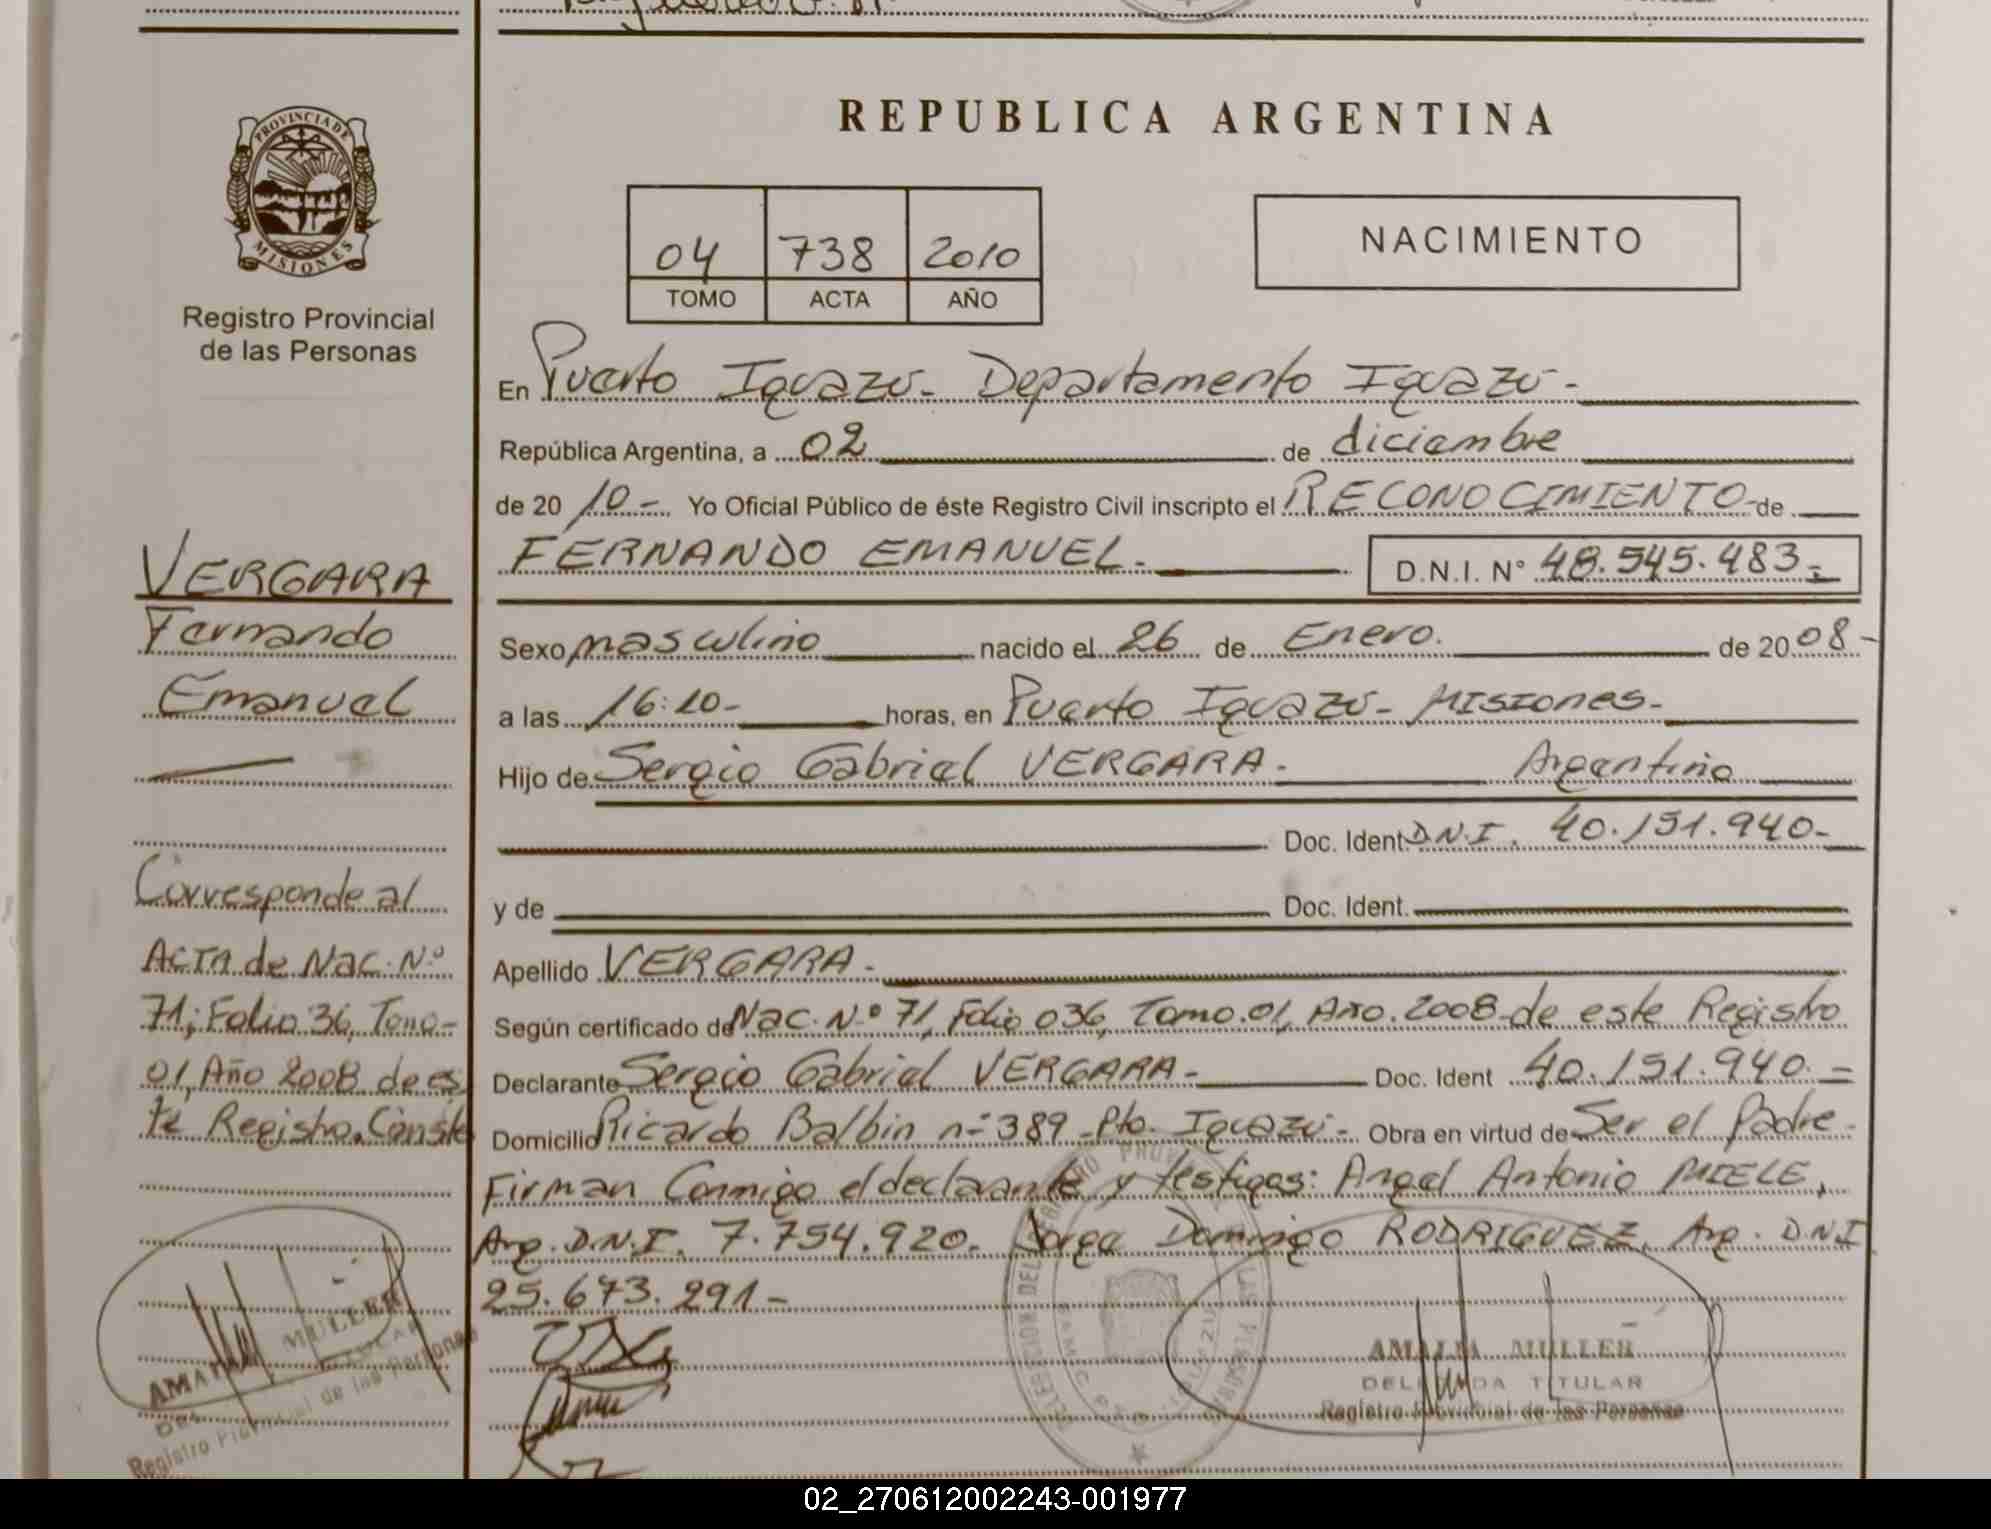 PROVINCIA DE
MISIONES
Registro Provincial
de las Personas
VERGARA
Fernando
Emanuel
Corresponde al
ACTA de Nac. Nº
71; Folio 36, Tomo-
01, Año 2008 de es
te Registro. Conste
AMALIA MULLER
Registro Provincial de las Personas
REPUBLICA ARGENTINA
04 738 2010
TOMO ACTA AÑO
NACIMIENTO
En Puerto Iguazú- Departamento Iguazú-
República Argentina, a 02 de diciembre
de 20 10- Yo Oficial Público de éste Registro Civil inscripto el RECONOCIMIENTO- de
FERNANDO EMANUEL- D.N.I. Nº 48.545.483-
Sexo masculino nacido el 26 de Enero. de 20 08-
a las 16:10- horas, en Puerto Iguazú- MISIONES-
Hijo de Sergio Gabriel VERGARA- Argentino
Doc. Ident. D.N.I. 40.151.940-
y de Doc. Ident.
Apellido VERGARA-
Según certificado de Nac. Nº 71, Folio 036, Tomo.01, Año.2008-de este Registro
Declarante Sergio Gabriel VERGARA- Doc. Ident 40.151.940.-
Domicilio Ricardo Balbin nº 389 -Pto. Iguazú- Obra en virtud de Ser el Padre-
Firman Conmigo el declarante y testigos: Angel Antonio MIELE,
Arg. D.N.I. 7.754.920. Jorge Domingo RODRIGUEZ, Arg. D.N.I
25.673.291-
AMALIA MULLER
DELEGADA TITULAR
Registro Provincial de las Personas
02_270612002243-001977